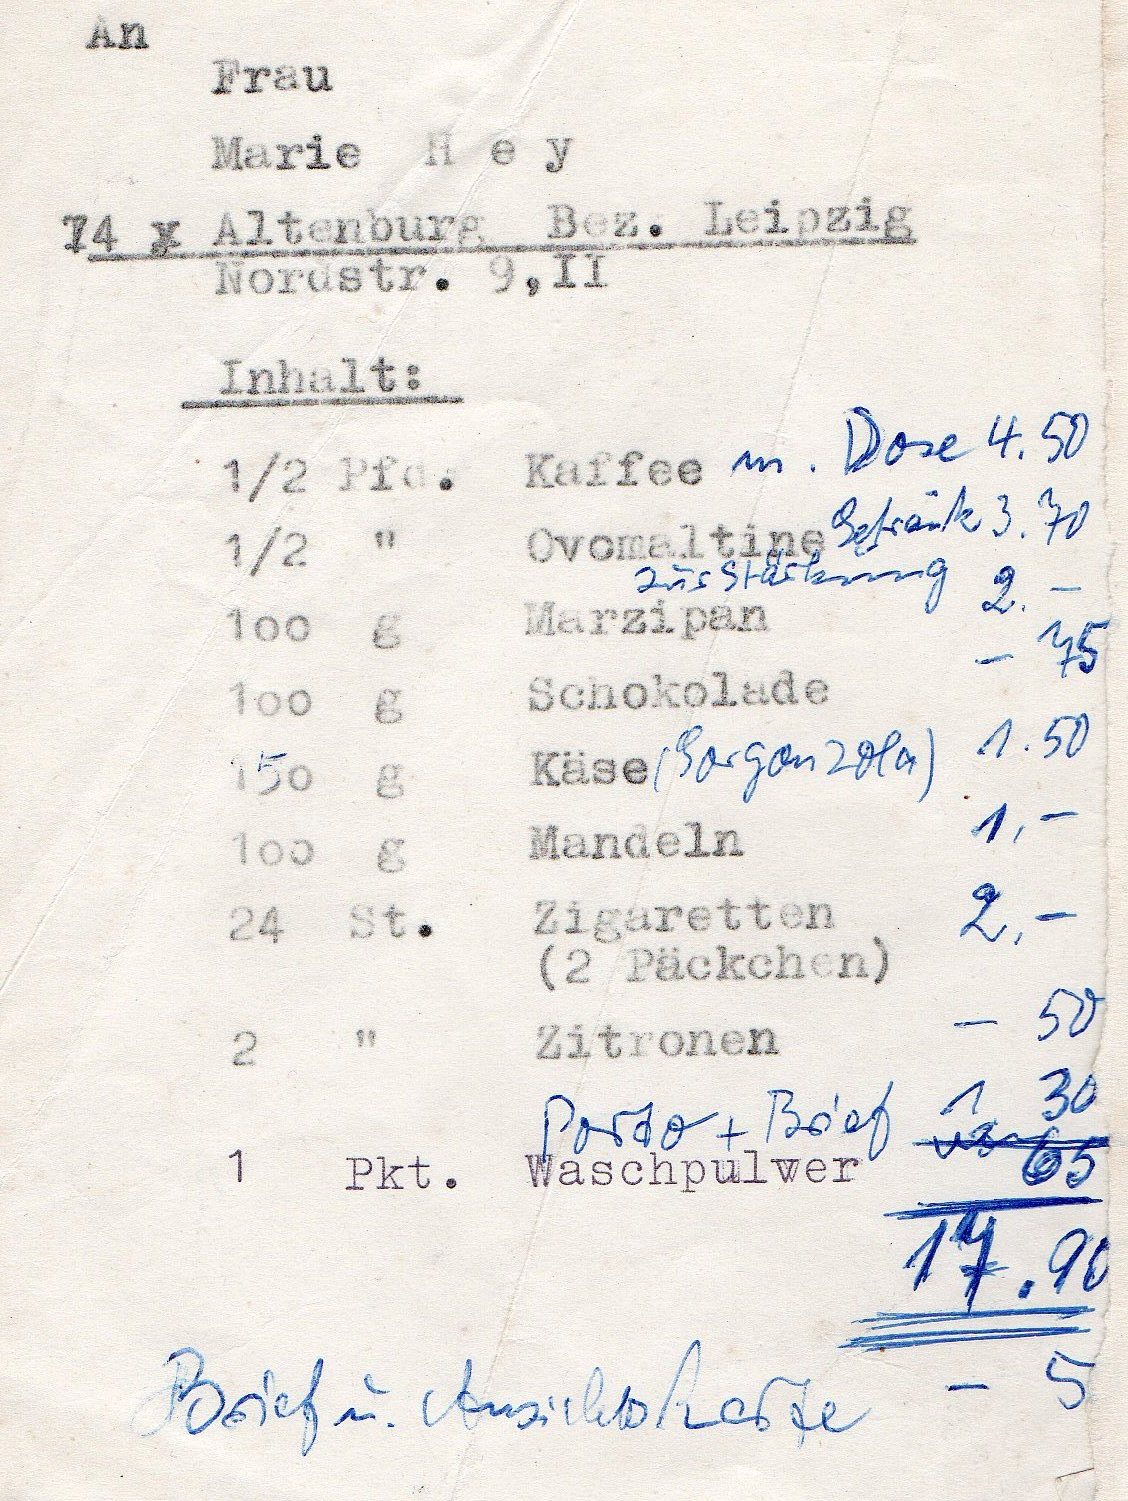 An
Frau
Marie H e y
74 x Altenburg Bez. Leipzig
Nordstr. 9,II
Inhalt:
1/2 Pfd. Kaffee m. Dose 4.50
1/2 " Ovomaltine Getränk 3.70
zur Stärkung
100 g Marzipan 2.–
100 g Schokolade – 75
150 g Käse (Gorgonzola) 1.50
100 g Mandeln 1,–
24 St. Zigaretten 2,–
(2 Päckchen)
2 " Zitronen – 50
Porto + Brief 1 30
1 Pkt. Waschpulver 65
17.90
Brief u. Ansichtskarte – 5